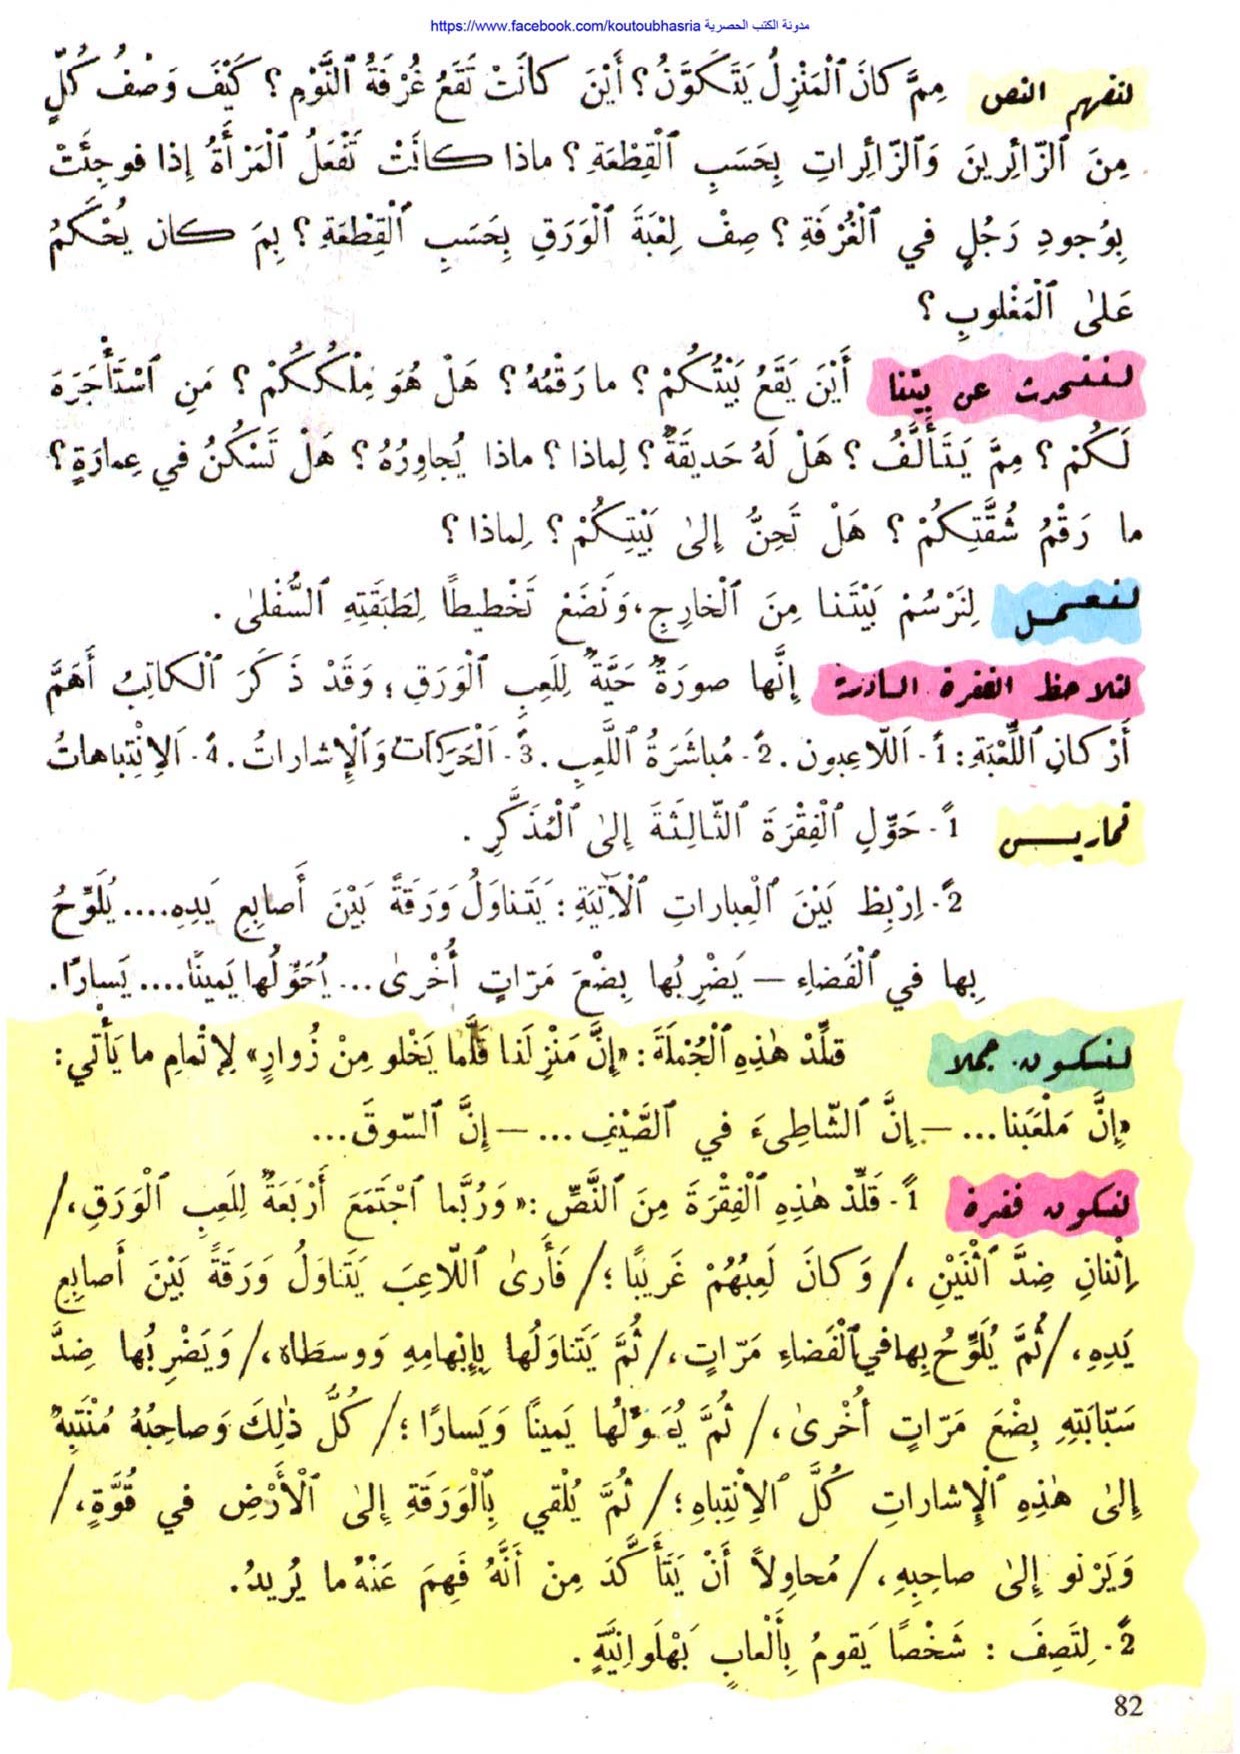 مدونة الكتب الحصرية https://www.facebook.com/koutoubhasria
لنفهم النص مِمَّ كانَ ٱلْمَنْزِلُ يَتَكَوَّنُ؟ أَيْنَ كانَتْ تَقَعُ غُرْفَةُ ٱلنَّوْمِ؟ كَيْفَ وَصْفُ كُلٍّ
مِنَ ٱلزّائِرينَ وَٱلزّائِراتِ بِحَسَبِ ٱلْقِطْعَةِ؟ ماذا كانَتْ تَفْعَلُ ٱلْمَرْأَةُ إِذا فوجِئَتْ
بِوُجودِ رَجُلٍ في ٱلْغُرْفَةِ؟ صِفْ لِعْبَةَ ٱلْوَرَقِ بِحَسَبِ ٱلْقِطْعَةِ؟ بِمَ كان يُحْكَمُ
عَلىٰ ٱلْمَغْلوبِ؟
لنتحدث عن بيتنا أَيْنَ يَقَعُ بَيْتُكُمْ؟ ما رَقْمُهُ؟ هَلْ هُوَ مِلْكُكُمْ؟ مَنِ ٱسْتَأْجَرَهُ
لَكُمْ؟ مِمَّ يَتَأَلَّفُ؟ هَلْ لَهُ حَديقَةٌ؟ لِماذا؟ ماذا يُجاوِرُهُ؟ هَلْ تَسْكُنُ في عِمارَةٍ؟
ما رَقْمُ شُقَّتِكُمْ؟ هَلْ تَحِنُّ إِلىٰ بَيْتِكُمْ؟ لِماذا؟
لنعمل لِنَرْسُمْ بَيْتَنا مِنَ ٱلْخارِجِ، وَنَضَعْ تَخْطيطاً لِطَبَقَتِهِ ٱلسُّفْلىٰ.
لنلاحظ الفقرة السادسة إِنَّها صورَةٌ حَيَّةٌ لِلَعِبِ ٱلْوَرَقِ؛ وَقَدْ ذَكَرَ ٱلْكاتِبُ أَهَمَّ
أَرْكانِ ٱللُّعْبَةِ: 1ً - اَللّاعِبون. 2ً - مُباشَرَةُ ٱللَّعِبِ. 3ً - اَلْحَرَكاتُ وَٱلْإِشاراتُ. 4ً - اَلِانْتِباهاتُ
تماريـــن 1ً - حَوِّلِ ٱلْفِقْرَةَ ٱلثّالِثَةَ إِلىٰ ٱلْمُذَكَّرِ.
2ً - اِرْبِطْ بَيْنَ ٱلْعِباراتِ ٱلْآتِيَةِ: يَتَناوَلُ وَرَقَةً بَيْنَ أَصابِعِ يَدِهِ.... يُلَوِّحُ
بِها في ٱلْفَضاءِ — يَضْرِبُها بِضْعَ مَرّاتٍ أُخْرىٰ... يُحَوِّلُها يَميناً.... يَسارًا.
لنكون جملا قَلِّدْ هٰذِهِ ٱلْجُمْلَةَ: «إِنَّ مَنْزِلَنا قَلَّما يَخْلو مِنْ زُوارٍ» لِإِتْمامِ ما يَأْتي:
«إِنَّ مَلْعَبَنا... — إِنَّ ٱلشّاطِىءَ في ٱلصَّيْفِ... — إِنَّ ٱلسّوقَ...
لنكون فقرة 1ً - قَلِّدْ هٰذِهِ ٱلْفِقْرَةَ مِنَ ٱلنَّصِّ: «وَرُبَّما ٱجْتَمَعَ أَرْبَعَةٌ لِلَعِبِ ٱلْوَرَقِ،/
اِثْنانِ ضِدَّ ٱثْنَيْنِ،/ وَكانَ لَعِبُهُمْ غَريبًا؛/ فَأَرىٰ ٱللّاعِبَ يَتَناوَلُ وَرَقَةً بَيْنَ أَصابِعِ
يَدِهِ،/ ثُمَّ يُلَوِّحُ بِها في ٱلْفَضاءِ مَرّاتٍ،/ ثُمَّ يَتَناوَلُها بِإِبْهامِهِ وَوسطَاه،/ وَيَضْرِبُها ضِدَّ
سَبّابَتِهِ بِضْعَ مَرّاتٍ أُخْرىٰ،/ ثُمَّ يُحَوِّلُها يَمينًا وَيَسارًا؛/ كُلُّ ذٰلِكَ وَصاحِبُهُ مُنْتَبِهٌ
إِلىٰ هٰذِهِ ٱلْإِشاراتِ كُلَّ ٱلِانْتِباهِ؛/ ثُمَّ يُلْقي بِٱلْوَرَقَةِ إِلىٰ ٱلْأَرْضِ في قُوَّةٍ،/
وَيَرْنو إِلىٰ صاحِبِهِ،/ مُحاوِلاً أَنْ يَتَأَكَّدَ مِنْ أَنَّهُ فَهِمَ عَنْهُ ما يُريدُ.
2ً - لِتَصِفَ: شَخْصًا يَقومُ بِأَلْعابٍ بَهْلَوانِيَّةٍ.
82